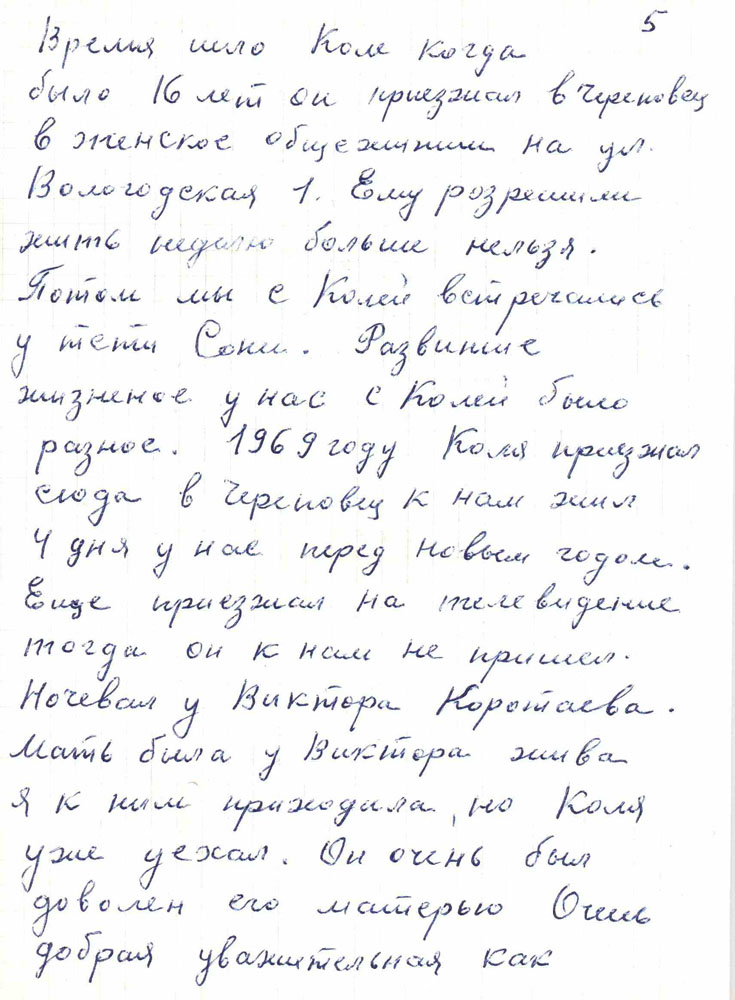 5
Время шло Коле когда
было 16 лет он приезжал в Череповец
в женское общежитии на ул.
Вологодская 1. Ему розрешили
жить неделю больше нельзя.
Потом мы с Колей встречались
у тети Сони. Развитие
жизненое у нас с Колей было
разное. 1969 году Коля приезжал
сюда в Череповец к нам жил
4 дня у нас перед новым годом.
Еще приезжал на телевидение
тогда он к нам не пришел.
Ночевал у Виктора Коротаева.
Мать была у Виктора жива
я к ним приходила, но Коля
уже уехал. Он очень был
доволен его матерью Очень
добрая уважительная как